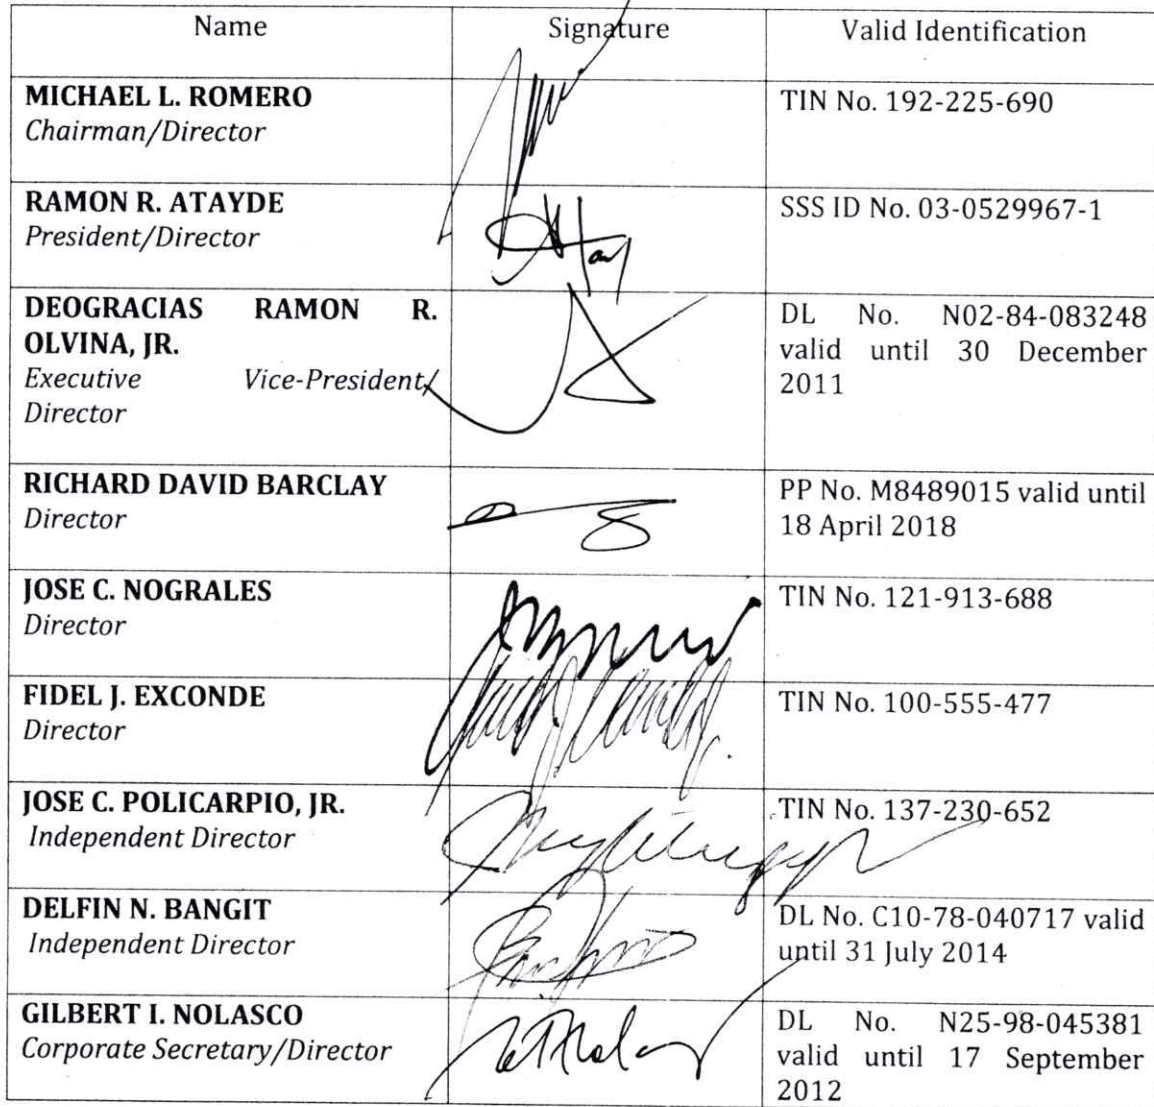 Name Signature Valid Identification
MICHAEL L. ROMERO
Chairman/Director
TIN No. 192-225-690
RAMON R. ATAYDE
President/Director
SSS ID No. 03-0529967-1
DEOGRACIAS RAMON R.
OLVINA, JR.
Executive Vice-President/
Director
DL No. N02-84-083248
valid until 30 December
2011
RICHARD DAVID BARCLAY
Director
PP No. M8489015 valid until
18 April 2018
JOSE C. NOGRALES
Director
TIN No. 121-913-688
FIDEL J. EXCONDE
Director
TIN No. 100-555-477
JOSE C. POLICARPIO, JR.
Independent Director
TIN No. 137-230-652
DELFIN N. BANGIT
Independent Director
DL No. C10-78-040717 valid
until 31 July 2014
GILBERT I. NOLASCO
Corporate Secretary/Director
DL No. N25-98-045381
valid until 17 September
2012